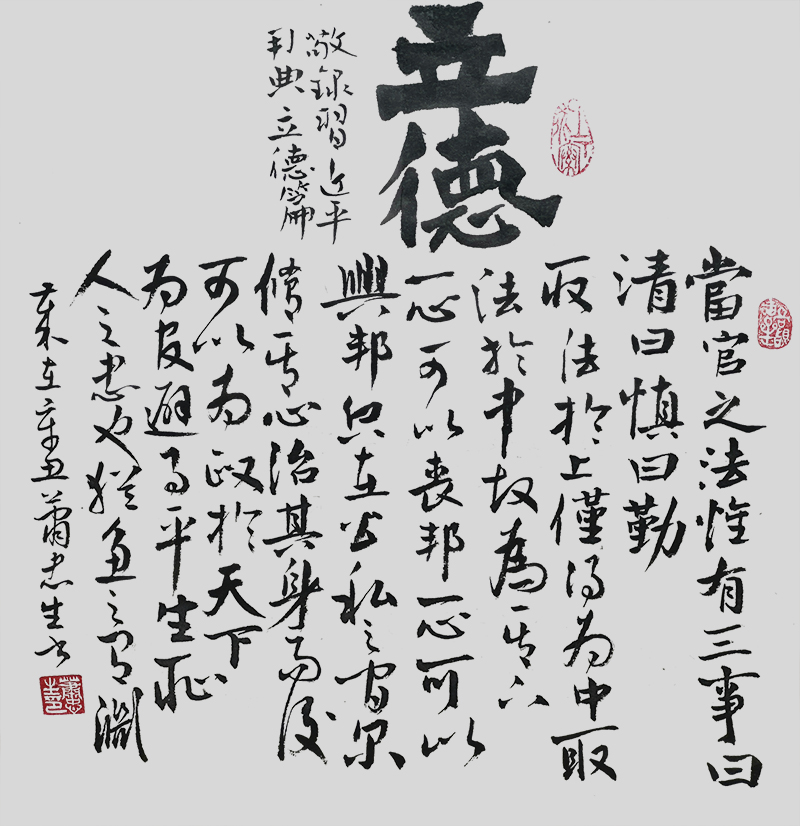 立德
敬録習近平
用典立德篇
當官之法惟有三事曰
清曰慎曰勤
取法於上僅得为中取
法於中故為其下
一心可以喪邦一心可以
興邦只在公私之间尔
脩其心治其身而後
可以为政於天下
为官避事平生耻
人之忠也猶魚之有淵
歲在辛丑蕭忠生书